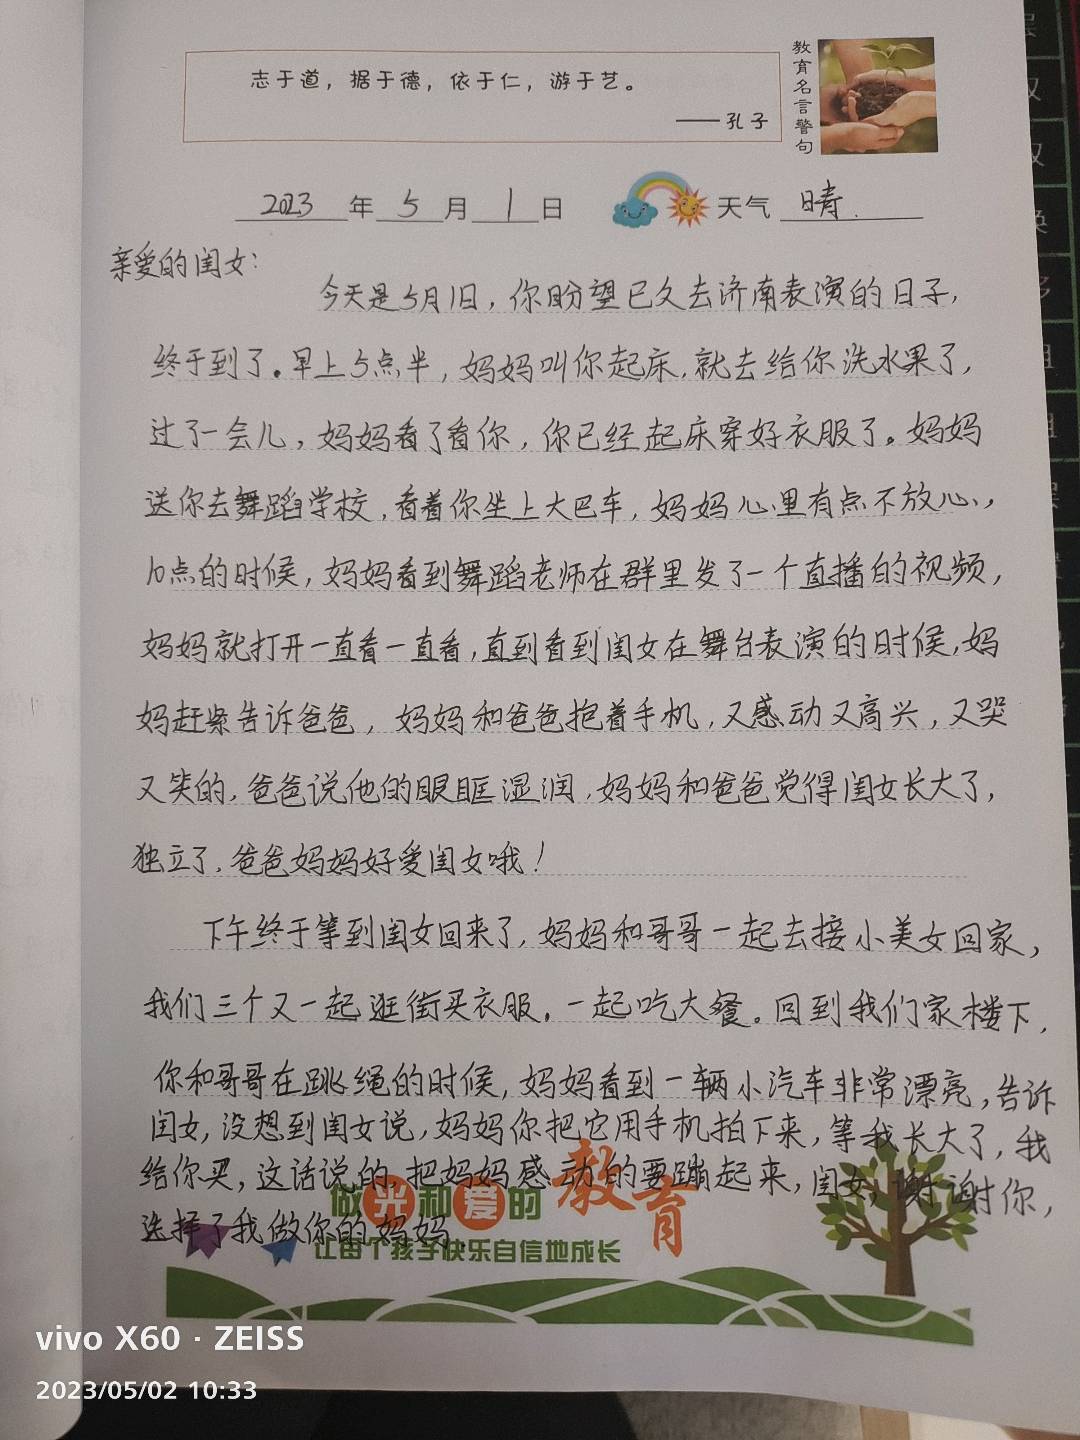 志于道，据于德，依于仁，游于艺。
——孔子
教育名言警句
2023年5月1日 天气 晴.
亲爱的闺女：
今天是5月1日，你盼望已久去济南表演的日子，
终于到了。早上5点半，妈妈叫你起床，就去给你洗水果了，
过了一会儿，妈妈看了看你，你已经起床穿好衣服了。妈妈
送你去舞蹈学校，看着你坐上大巴车，妈妈心里有点不放心，
10点的时候，妈妈看到舞蹈老师在群里发了一个直播的视频，
妈妈就打开一直看一直看，直到看到闺女在舞台表演的时候，妈
妈赶紧告诉爸爸，妈妈和爸爸抱着手机，又感动又高兴，又哭
又笑的，爸爸说他的眼眶湿润，妈妈和爸爸觉得闺女长大了，
独立了，爸爸妈妈好爱闺女哦！
下午终于等到闺女回来了，妈妈和哥哥一起去接小美女回家，
我们三个又一起逛街买衣服，一起吃大餐。回到我们家楼下，
你和哥哥在跳绳的时候，妈妈看到一辆小汽车非常漂亮，告诉
闺女，没想到闺女说，妈妈你把它用手机拍下来，等我长大了，我
给你买，这话说的，把妈妈感动的要蹦起来，闺女，谢谢你，
选择了我做你的妈妈.
做光和爱的教育
让每个孩子快乐自信地成长
vivo X60 · ZEISS
2023/05/02 10:33